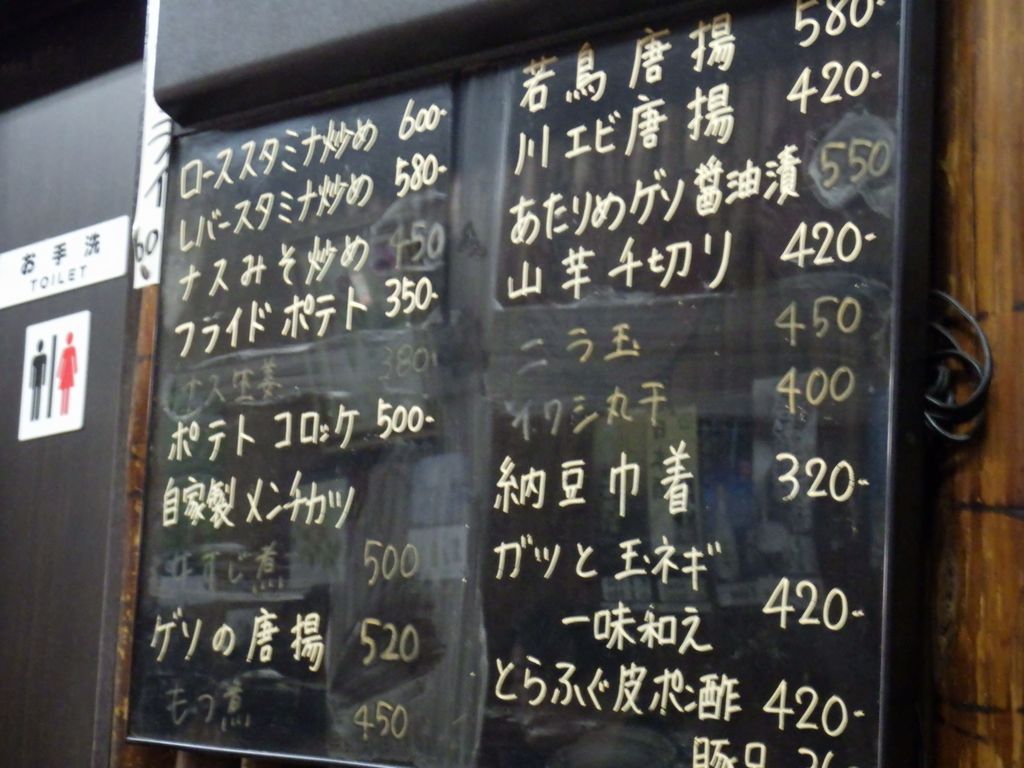 お手洗
TOILET
ロ-ススタミナ炒め 600-
レバースタミナ炒め 580-
ナスみそ炒め 450
フライドポテト 350-
380
ポテトコロッケ 500-
自家製メンチカツ
牛すじ煮 500
ゲソの唐揚 520
もつ煮 450
若鳥唐揚 580-
川エビ唐揚 420-
あたりめゲソ醤油漬 550
山芋千切り 420-
ニラ玉 450
イワシ丸干 400
納豆巾着 320-
ガツと玉ネギ
一味和え 420-
とらふぐ皮ポン酢 420-